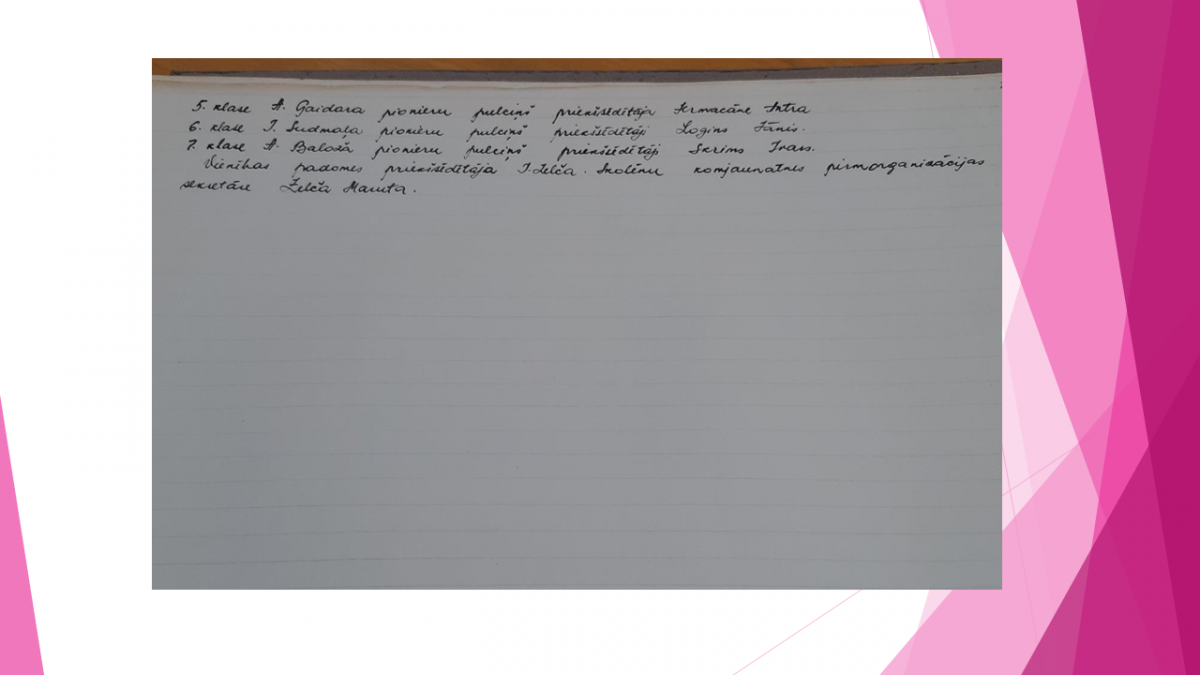 5. klase A. Gaidara pionieru pulciņš priekšsēdētāja Ermacāne Antra
6. klase I. Sudmaļa pionieru pulciņš priekšsēdētāji Logins Jānis.
7. klase A. Baloža pionieru pulciņš priekšsēdētāji Skrims Ivars.
Vienības padomes priekšsēdētāja I. Zelča. Skolēnu komjaunatnes pirmorganizācijas
sekretāre Zelča Maruta.